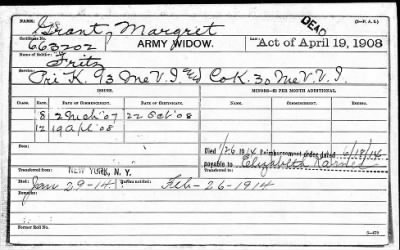 NAME: Grant, Margret DEAD (3—P. A. S.)
Certificate No. 663202 ARMY WIDOW. Act of April 19, 1908
Name of Soldier: Fritz
Service: Pri K. 93 Me V. I. Co K. 30 Me V. V. I.
ISSUE. MINORS—$2 PER MONTH ADDITIONAL.
CLASS. RATE. DATE OF COMMENCEMENT. DATE OF CERTIFICATE.
8 2 Mch '07 22 Oct '08
12 19 Apl '08
Died 1/26 1914 Reimbursement order dated 6/18/14
payable to Elizabeth
Transferred from: NEW YORK, N. Y.
Died: Jan-29-14. Bureau notified: Feb-26-1914
Former Roll No.
3—479